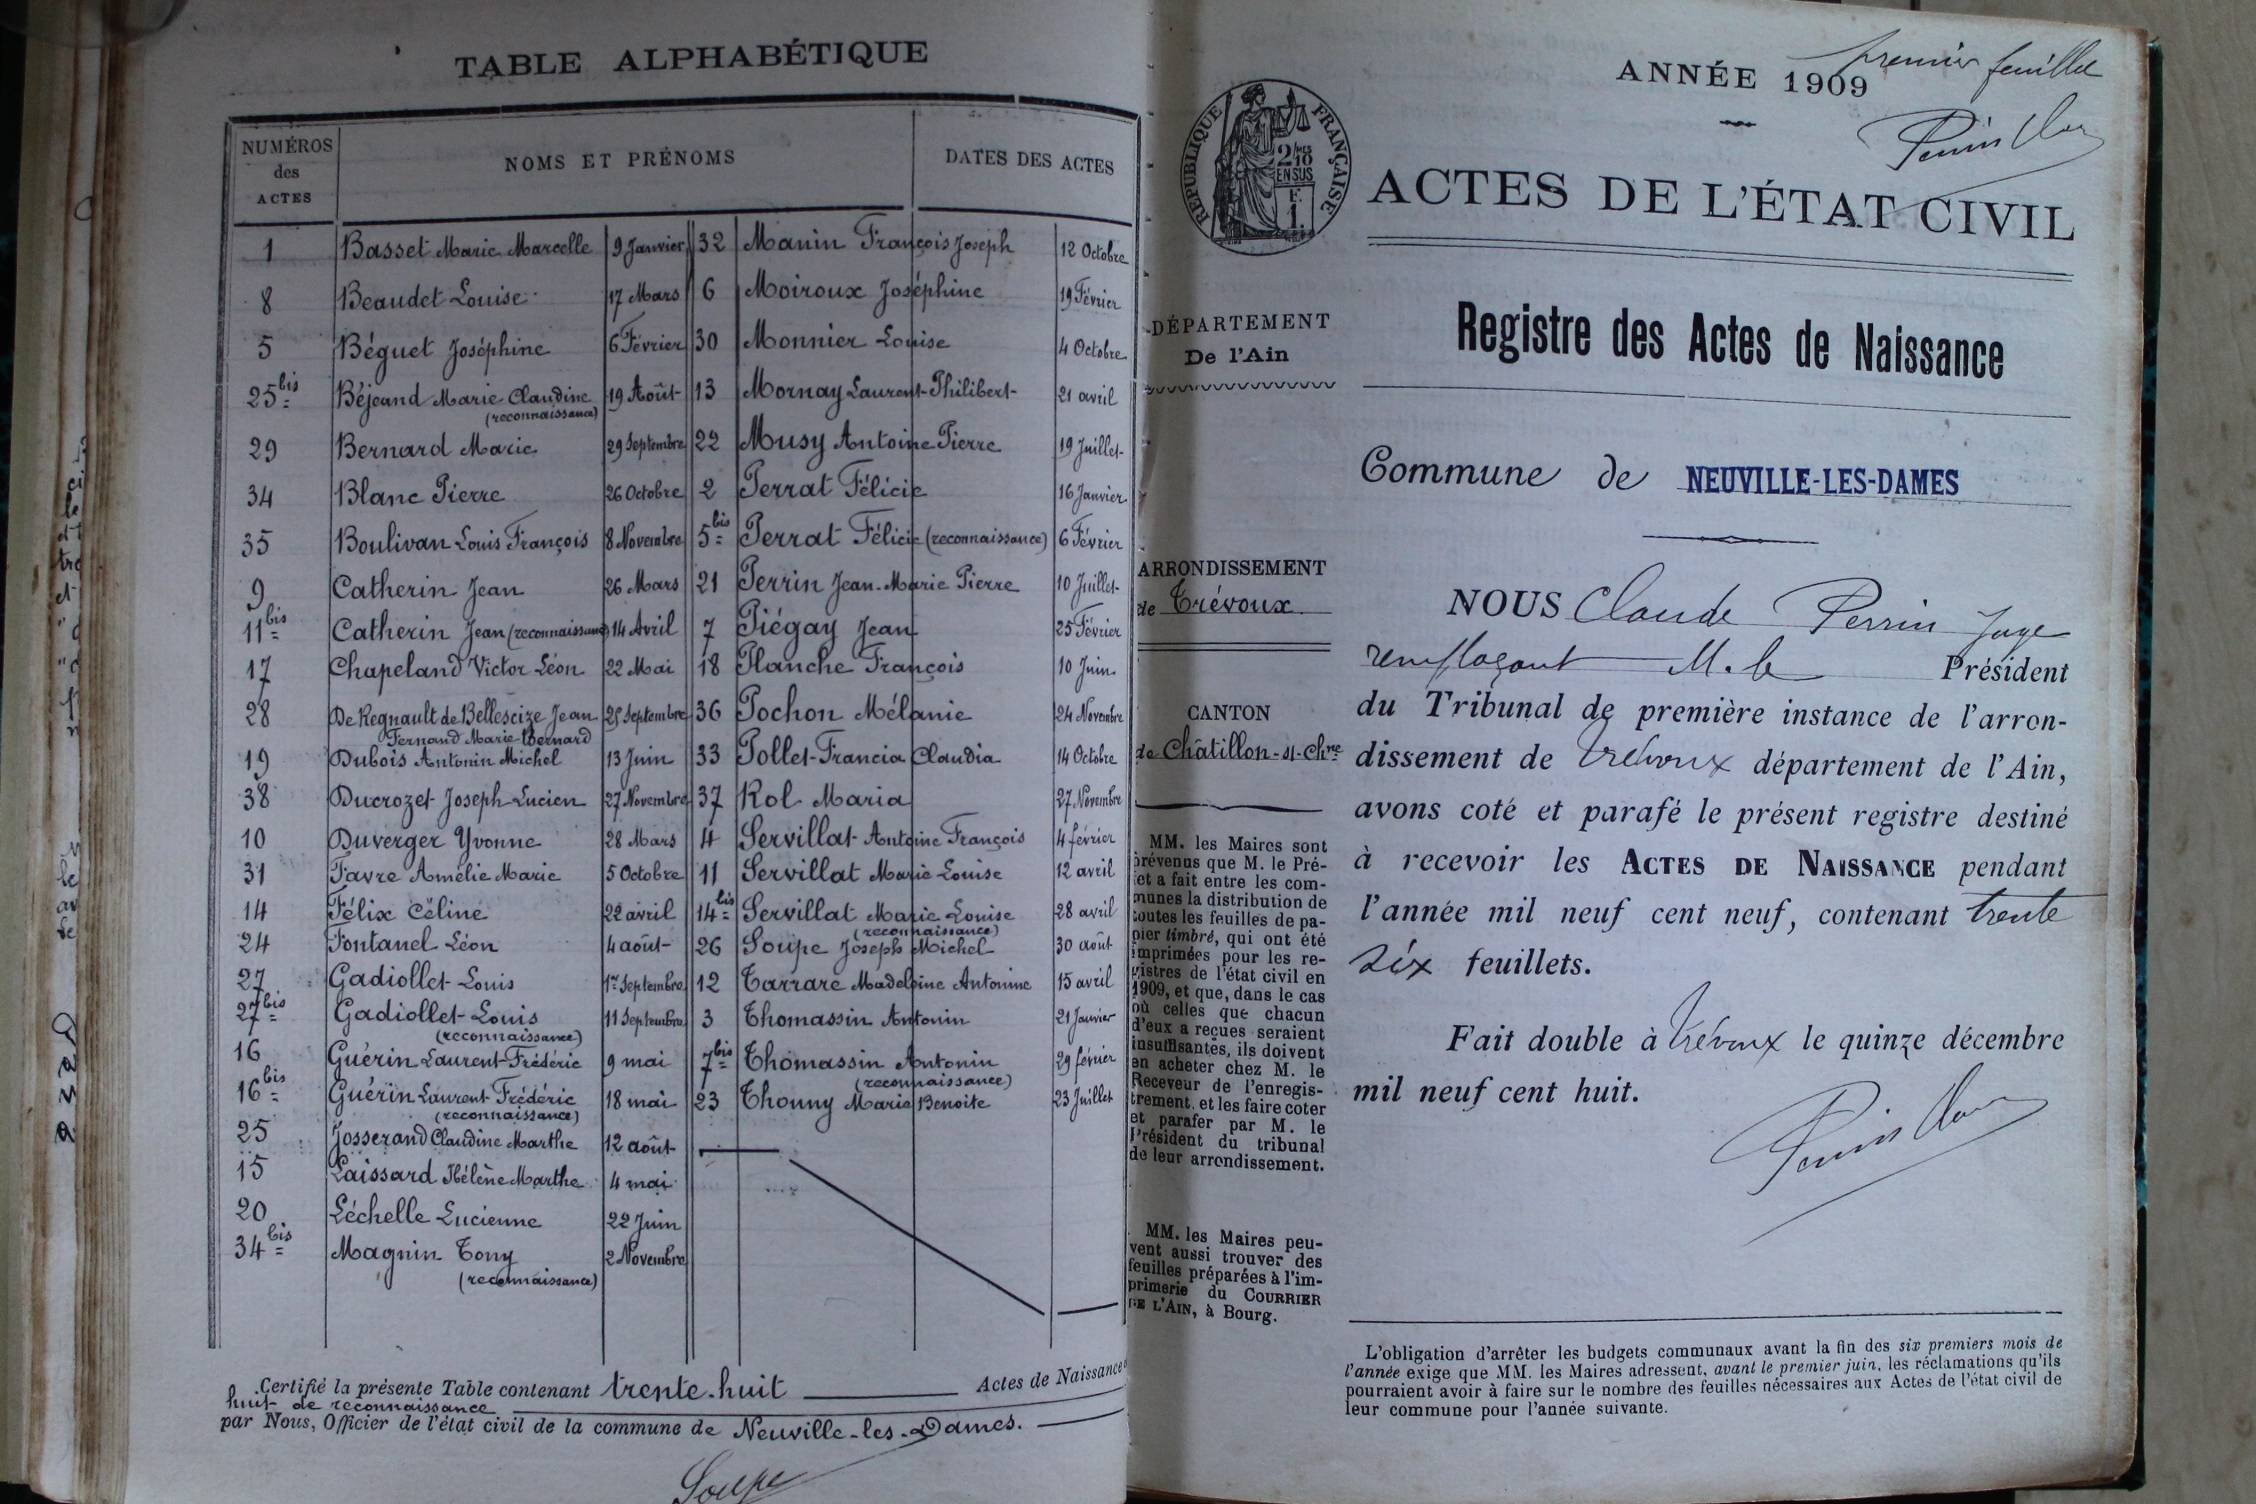 TABLE ALPHABÉTIQUE
NUMÉROS des ACTES
NOMS ET PRÉNOMS
DATES DES ACTES
1 Basset Marie Marcelle 9 Janvier
8 Beaudet Louise 17 Mars
5 Béguet Joséphine 6 Février
25bis Béjeand Marie Claudine 19 Août
(reconnaissance)
29 Bernard Marie 29 Septembre
34 Blanc Pierre 26 Octobre
35 Boulivan Louis François 8 Novembre
9 Catherin Jean 26 Mars
11bis Catherin Jean (reconnaissance) 14 Avril
17 Chapeland Victor Léon 22 Mai
28 De Regnault de Bellescize Jean 25 Septembre
Fernand Marie Bernard
19 Dubois Antonin Michel 13 Juin
38 Ducrozet Joseph Lucien 27 Novembre
10 Duverger Yvonne 28 Mars
31 Favre Amélie Marie 5 Octobre
14 Félix Céline 22 avril
24 Fontanel Léon 4 août
27 Gadiollet Louis 1er Septembre
27bis Gadiollet Louis 11 Septembre
(reconnaissance)
16 Guérin Laurent Frédéric 9 mai
16bis Guérin Laurent Frédéric 18 mai
(reconnaissance)
25 Josserand Claudine Marthe 12 août
15 Laissard Hélène Marthe 4 mai
20 Léchelle Lucienne 22 Juin
34bis Magnin Tony 2 Novembre
(reconnaissance)
32 Manin François Joseph 12 Octobre
6 Moiroux Joséphine 19 Février
30 Monnier Louise 4 Octobre
13 Mornay Laurent-Philibert 21 avril
22 Musy Antoine Pierre 19 Juillet
2 Perrat Félicie 16 Janvier
5bis Perrat Félicie (reconnaissance) 6 Février
21 Perrin Jean-Marie Pierre 10 Juillet
7 Piégay Jean 25 Février
18 Planche François 10 Juin
36 Pochon Mélanie 24 Novembre
33 Pollet-Francia Claudia 14 Octobre
37 Rol Maria 27 Novembre
4 Servillat Antoine François 4 février
11 Servillat Marie Louise 12 avril
14bis Servillat Marie Louise 28 avril
(reconnaissance)
26 Soupe Joseph Michel 30 août
12 Tarrare Madeleine Antonine 15 avril
3 Thomassin Antonin 21 Janvier
7bis Thomassin Antonin 29 février
(reconnaissance)
23 Thonny Marie Benoite 23 Juillet
Certifié la présente Table contenant trente-huit Actes de Naissance
huit de reconnaissance
par Nous, Officier de l'état civil de la commune de Neuville-les-Dames.
Soupe
premier feuillet
ANNÉE 1909
RÉPUBLIQUE FRANÇAISE
2/10mes
EN SUS
F.
1.
ACTES DE L'ÉTAT CIVIL
DÉPARTEMENT
De l'Ain
ARRONDISSEMENT
de Trévoux
CANTON
de Châtillon-s-Chne
MM. les Maires sont
prévenus que M. le Pré-
fet a fait entre les com-
munes la distribution de
toutes les feuilles de pa-
pier timbré, qui ont été
imprimées pour les re-
gistres de l'état civil en
1909, et que, dans le cas
où celles que chacun
d'eux a reçues seraient
insuffisantes, ils doivent
en acheter chez M. le
Receveur de l'enregis-
trement, et les faire coter
et parafer par M. le
Président du tribunal
de leur arrondissement.
MM. les Maires peu-
vent aussi trouver des
feuilles préparées à l'im-
primerie du COURRIER
DE L'AIN, à Bourg.
Registre des Actes de Naissance
Commune de NEUVILLE-LES-DAMES
NOUS Claude Perrin Juge
remplaçant M. le Président
du Tribunal de première instance de l'arron-
dissement de Trévoux département de l'Ain,
avons coté et parafé le présent registre destiné
à recevoir les ACTES DE NAISSANCE pendant
l'année mil neuf cent neuf, contenant trente
six feuillets.
Fait double à Trévoux le quinze décembre
mil neuf cent huit.
L'obligation d'arrêter les budgets communaux avant la fin des six premiers mois de
l'année exige que MM. les Maires adressent, avant le premier juin, les réclamations qu'ils
pourraient avoir à faire sur le nombre des feuilles nécessaires aux Actes de l'état civil de
leur commune pour l'année suivante.